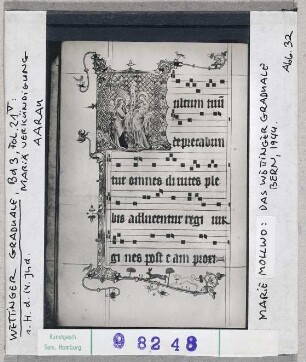 WETTINGER GRADUALE, Bd 3, Fol. 21V:
1. H. d. 14. Jhd.
MARIÄ VERKÜNDIGUNG
AARAU
ultum tuū
deprecabun
tur omnes diuites ple
bis adducentur regi uir
gi nes post e am prox
MARIE MOLLWO: DAS WETTINGER GRADUALE
BERN, 1944.
Abb. 32
Kunstgesch.
Sem. Hamburg
98243